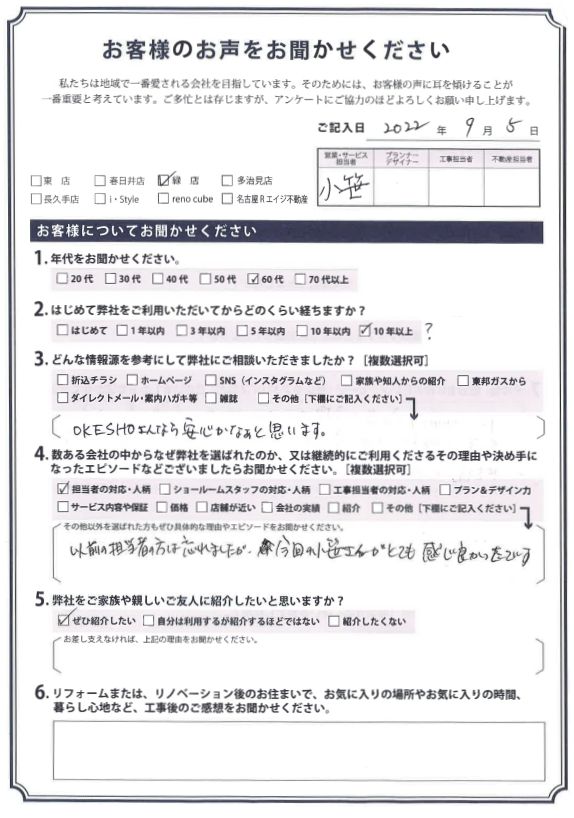 お客様のお声をお聞かせください
私たちは地域で一番愛される会社を目指しています。そのためには、お客様の声に耳を傾けることが
一番重要と考えています。ご多忙とは存じますが、アンケートにご協力のほどよろしくお願い申し上げます。
ご記入日 2022 年 9 月 5 日
営業・サービス担当者 プランナーデザイナー 工事担当者 不動産担当者
小笹
□東 店 □春日井店 ☑緑 店 □多治見店
□長久手店 □i・Style □reno cube □名古屋Rエイジ不動産
お客様についてお聞かせください
1.年代をお聞かせください。
□20代 □30代 □40代 □50代 ☑60代 □70代以上
2.はじめて弊社をご利用いただいてからどのくらい経ちますか？
□はじめて □1年以内 □3年以内 □5年以内 □10年以内 ☑10年以上 ?
3.どんな情報源を参考にして弊社にご相談いただきましたか？［複数選択可］
□折込チラシ □ホームページ □SNS（インスタグラムなど） □家族や知人からの紹介 □東邦ガスから
□ダイレクトメール・案内ハガキ等 □雑誌 □その他［下欄にご記入ください］
OKESHOさんなら安心かなぁと思います。
4.数ある会社の中からなぜ弊社を選ばれたのか、又は継続的にご利用くださるその理由や決め手に
なったエピソードなどございましたらお聞かせください。［複数選択可］
☑担当者の対応・人柄 □ショールームスタッフの対応・人柄 □工事担当者の対応・人柄 □プラン＆デザイン力
□サービス内容や保証 □価格 □店舗が近い □会社の実績 □紹介 □その他［下欄にご記入ください］
その他以外を選ばれた方もぜひ具体的な理由やエピソードをお聞かせください。
以前の担当者の方は忘れましたが、今回の小笹さんがとても感じ良かったです
5.弊社をご家族や親しいご友人に紹介したいと思いますか？
☑ぜひ紹介したい □自分は利用するが紹介するほどではない □紹介したくない
お差し支えなければ、上記の理由をお聞かせください。
6.リフォームまたは、リノベーション後のお住まいで、お気に入りの場所やお気に入りの時間、
暮らし心地など、工事後のご感想をお聞かせください。